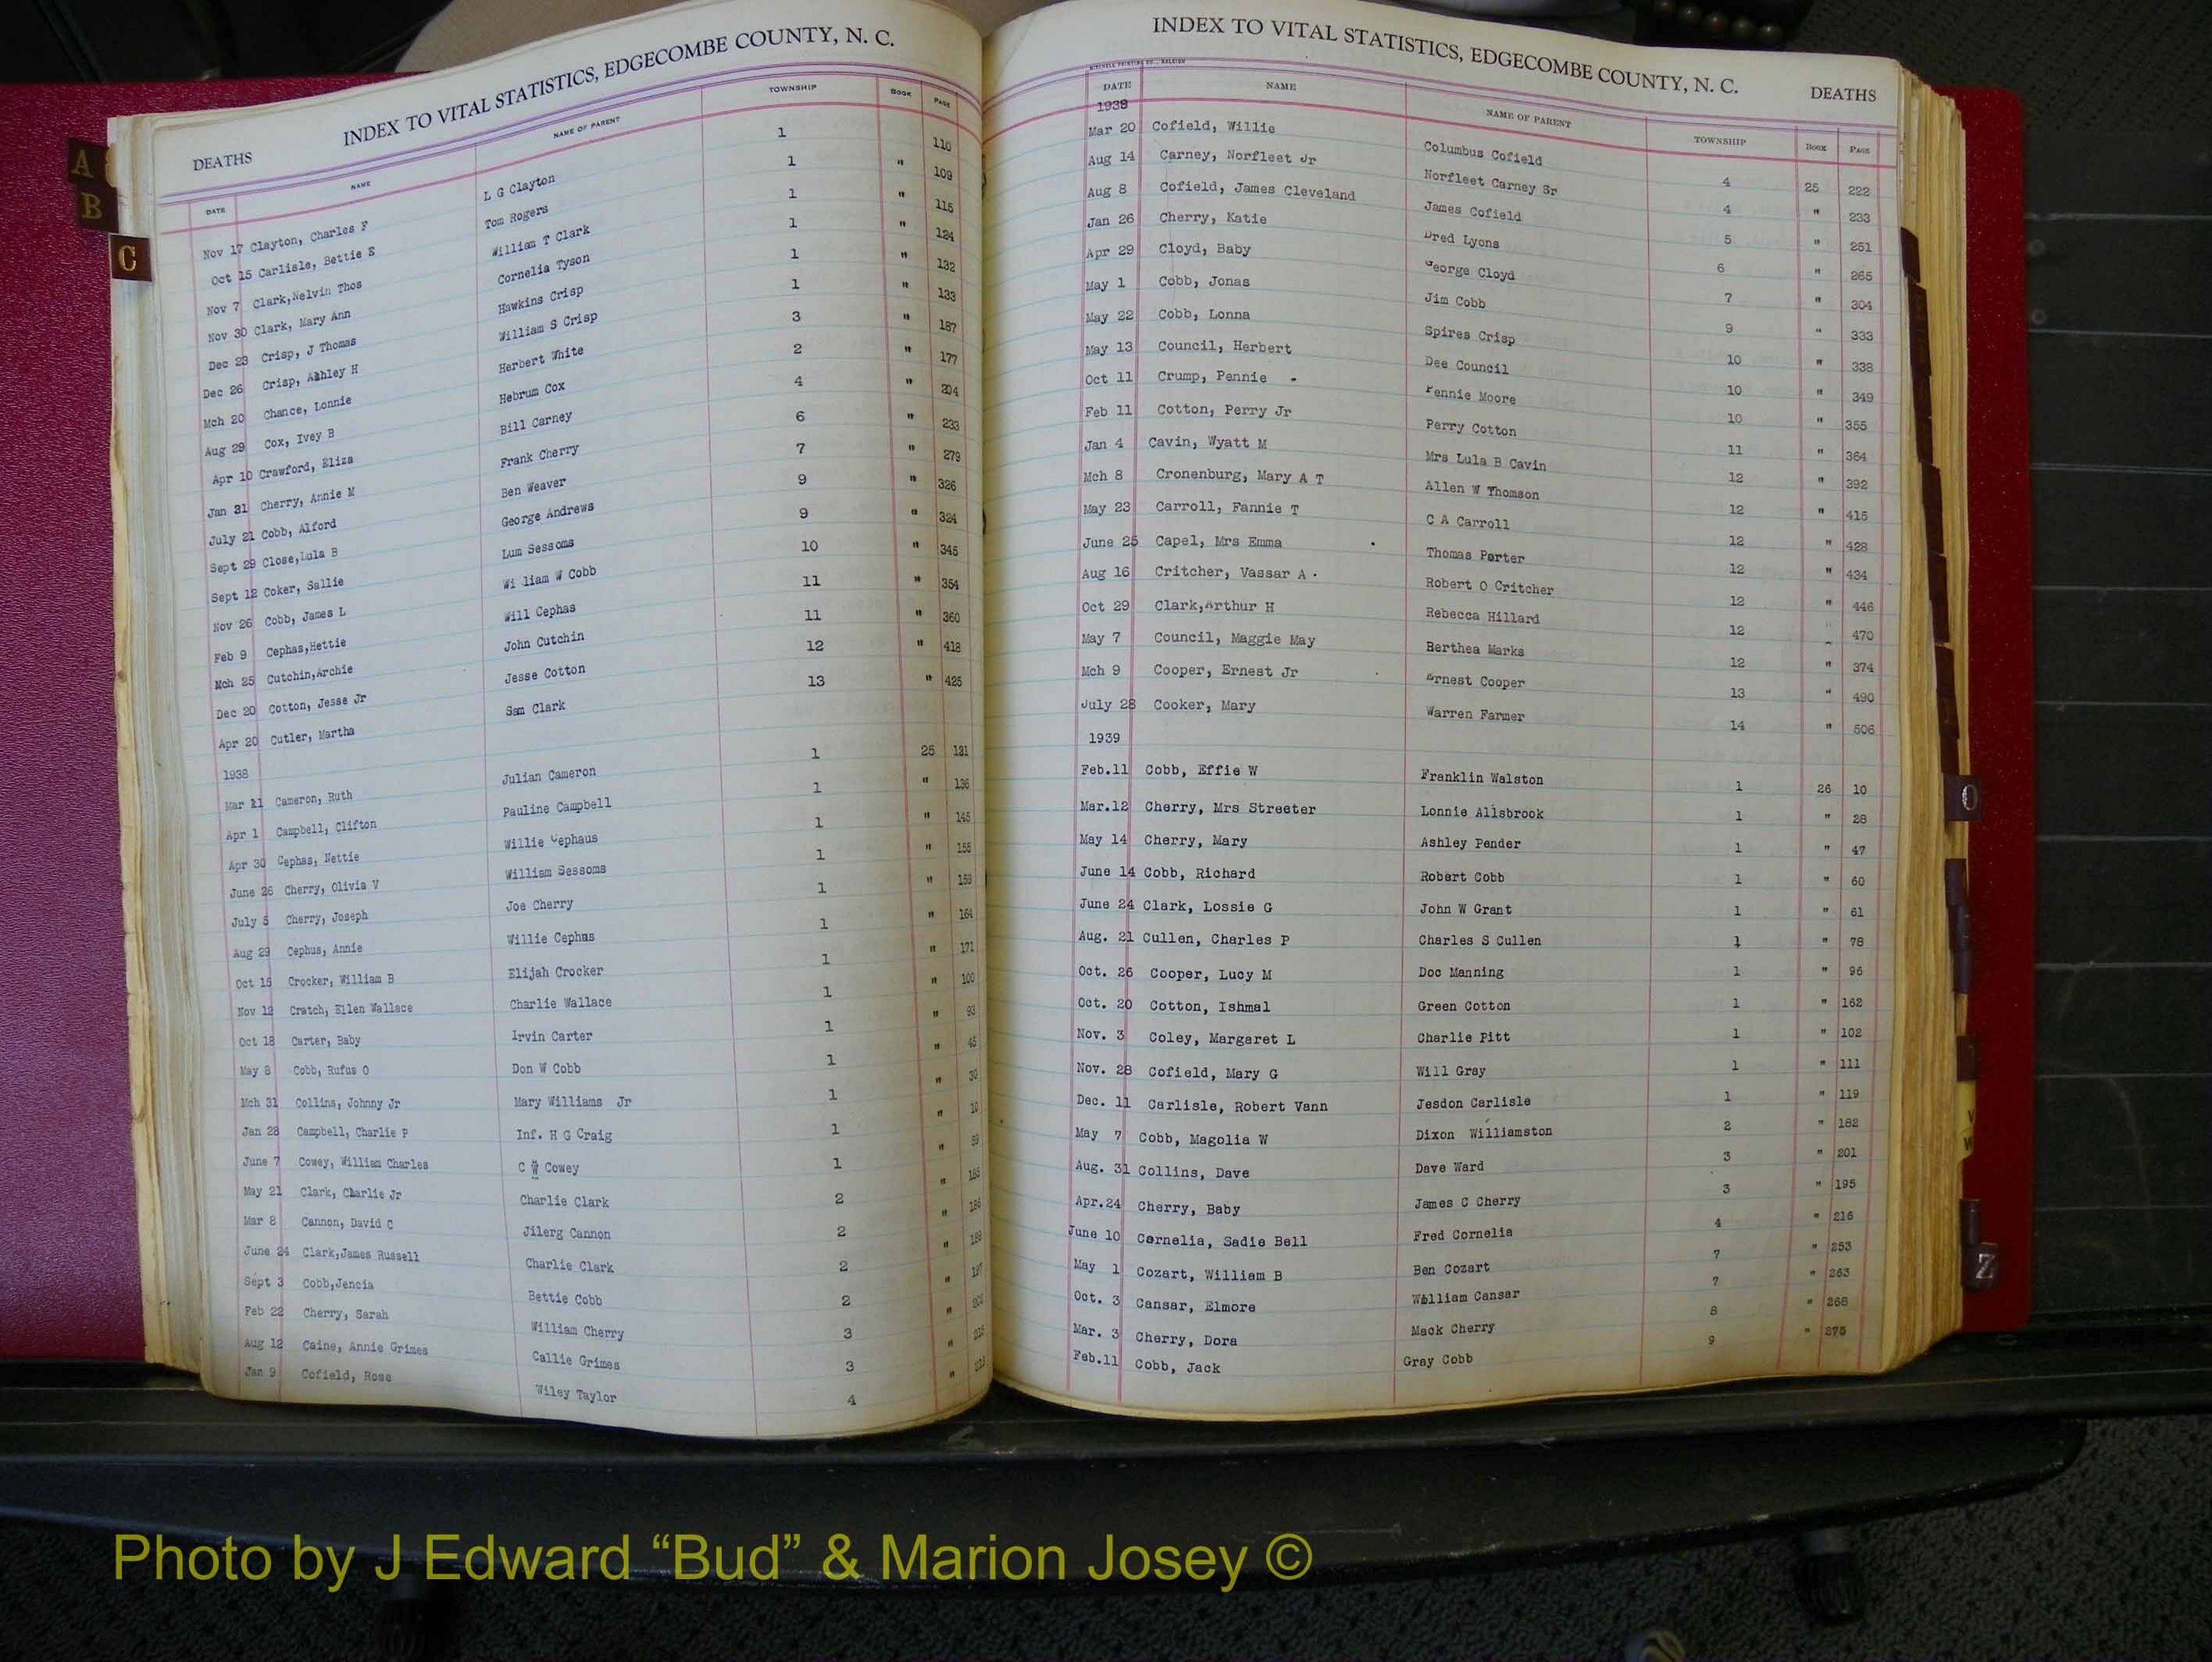 INDEX TO VITAL STATISTICS, EDGECOMBE COUNTY, N. C.
DEATHS
DATE NAME NAME OF PARENT TOWNSHIP BOOK PAGE
Nov 17 Clayton, Charles F L G Clayton 1 110
Oct 15 Carlisle, Bettie E Tom Rogers 1 " 109
Nov 7 Clark,Melvin Thos William T Clark 1 " 115
Nov 30 Clark, Mary Ann Cornelia Tyson 1 " 124
Dec 23 Crisp, J Thomas Hawkins Crisp 1 " 132
Dec 26 Crisp, Ashley H William S Crisp 1 " 133
Mch 20 Chance, Lonnie Herbert White 3 " 187
Aug 29 Cox, Ivey B Hebrum Cox 2 " 177
Apr 10 Crawford, Eliza Bill Carney 4 " 204
Jan 31 Cherry, Annie M Frank Cherry 6 " 233
July 21 Cobb, Alford Ben Weaver 7 " 279
Sept 29 Close,Lula B George Andrews 9 " 326
Sept 12 Coker, Sallie Lum Sessoms 9 " 324
Nov 26 Cobb, James L Wi liam W Cobb 10 " 345
Feb 9 Cephas,Hettie Will Cephas 11 " 354
Mch 25 Cutchin,Archie John Cutchin 11 " 360
Dec 20 Cotton, Jesse Jr Jesse Cotton 12 " 418
Apr 20 Cutler, Martha Sam Clark 13 " 425
1938
Mar 11 Cameron, Ruth Julian Cameron 1 25 121
Apr 1 Campbell, Clifton Pauline Campbell 1 " 136
Apr 30 Cephas, Nettie Willie Cephaus 1 " 145
June 26 Cherry, Olivia V William Sessoms 1 " 155
July 5 Cherry, Joseph Joe Cherry 1 " 159
Aug 29 Cephus, Annie Willie Cephas 1 " 164
Oct 15 Crocker, William B Elijah Crocker 1 " 171
Nov 12 Cratch, Ellen Wallace Charlie Wallace 1 " 100
Oct 18 Carter, Baby Irvin Carter 1 " 93
May 8 Cobb, Rufus O Don W Cobb 1 " 45
Mch 31 Collins, Johnny Jr Mary Williams Jr 1 " 30
Jan 28 Campbell, Charlie P Inf. H G Craig 1 " 10
June 7 Cowey, William Charles C W Cowey 1 " 59
May 21 Clark, Charlie Jr Charlie Clark 2 " 185
Mar 8 Cannon, David C Jilerg Cannon 2 " 186
June 24 Clark,James Russell Charlie Clark 2 " 189
Sept 3 Cobb,Jencia Bettie Cobb 2 " 197
Feb 22 Cherry, Sarah William Cherry 3 "
Aug 12 Caine, Annie Grimes Callie Grimes 3 " 215
Jan 9 Cofield, Rose Wiley Taylor 4 "
INDEX TO VITAL STATISTICS, EDGECOMBE COUNTY, N. C.
DEATHS
MITCHELL PRINTING CO., RALEIGH
DATE NAME NAME OF PARENT TOWNSHIP BOOK PAGE
1938
Mar 20 Cofield, Willie Columbus Cofield 4 25 222
Aug 14 Carney, Norfleet Jr Norfleet Carney Sr 4 " 233
Aug 8 Cofield, James Cleveland James Cofield 5 " 251
Jan 26 Cherry, Katie Dred Lyons 6 " 265
Apr 29 Cloyd, Baby George Cloyd 7 " 304
May 1 Cobb, Jonas Jim Cobb 9 " 333
May 22 Cobb, Lonna Spires Crisp 10 " 338
May 13 Council, Herbert Dee Council 10 " 349
Oct 11 Crump, Pennie - Pennie Moore 10 " 355
Feb 11 Cotton, Perry Jr Perry Cotton 11 " 364
Jan 4 Cavin, Wyatt M Mrs Lula B Cavin 12 " 392
Mch 8 Cronenburg, Mary A T Allen W Thomson 12 " 415
May 23 Carroll, Fannie T C A Carroll 12 " 428
June 25 Capel, Mrs Emma Thomas Porter 12 " 434
Aug 16 Critcher, Vassar A. Robert O Critcher 12 " 446
Oct 29 Clark,Arthur H Rebecca Hillard 12 " 470
May 7 Council, Maggie May Berthea Marks 12 " 374
Mch 9 Cooper, Ernest Jr Ernest Cooper 13 " 490
July 28 Cooker, Mary Warren Farmer 14 " 506
1939
Feb.11 Cobb, Effie W Franklin Walston 1 26 10
Mar.12 Cherry, Mrs Streeter Lonnie Allsbrook 1 " 28
May 14 Cherry, Mary Ashley Pender 1 " 47
June 14 Cobb, Richard Robert Cobb 1 " 60
June 24 Clark, Lossie G John W Grant 1 " 61
Aug. 21 Cullen, Charles P Charles S Cullen 1 " 78
Oct. 26 Cooper, Lucy M Doc Manning 1 " 96
Oct. 20 Cotton, Ishmal Green Cotton 1 " 162
Nov. 3 Coley, Margaret L Charlie Pitt 1 " 102
Nov. 28 Cofield, Mary G Will Gray 1 " 111
Dec. 11 Carlisle, Robert Vann Jesdon Carlisle 1 " 119
May 7 Cobb, Magolia W Dixon Williamston 2 " 182
Aug. 31 Collins, Dave Dave Ward 3 " 201
Apr.24 Cherry, Baby James C Cherry 3 " 195
June 10 Cornelia, Sadie Bell Fred Cornelia 4 " 216
May 1 Cozart, William B Ben Cozart 7 " 253
Oct. 3 Cansar, Elmore William Cansar 7 " 263
Mar. 3 Cherry, Dora Mack Cherry 8 " 268
Feb.11 Cobb, Jack Gray Cobb 9 " 275
A
B
C
O
V
W
Z
Photo by J Edward “Bud” & Marion Josey ©